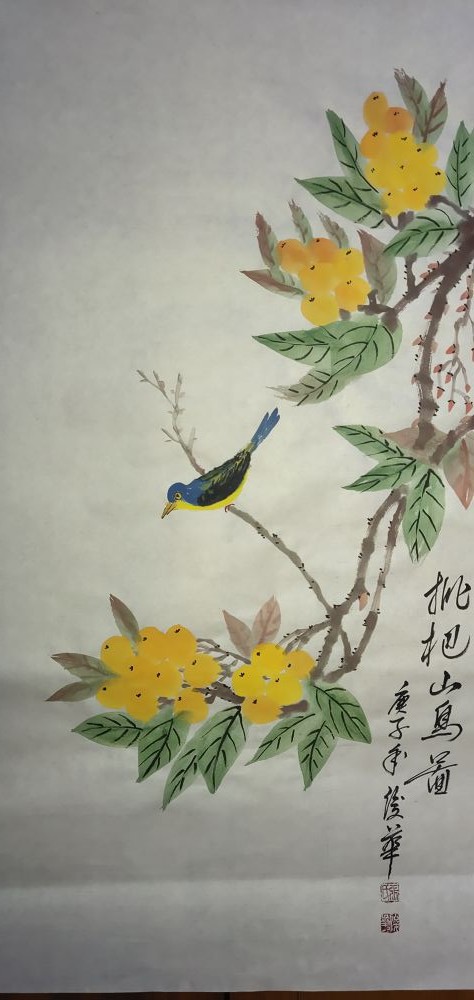 枇杷山鳥圖
庚子年俊華